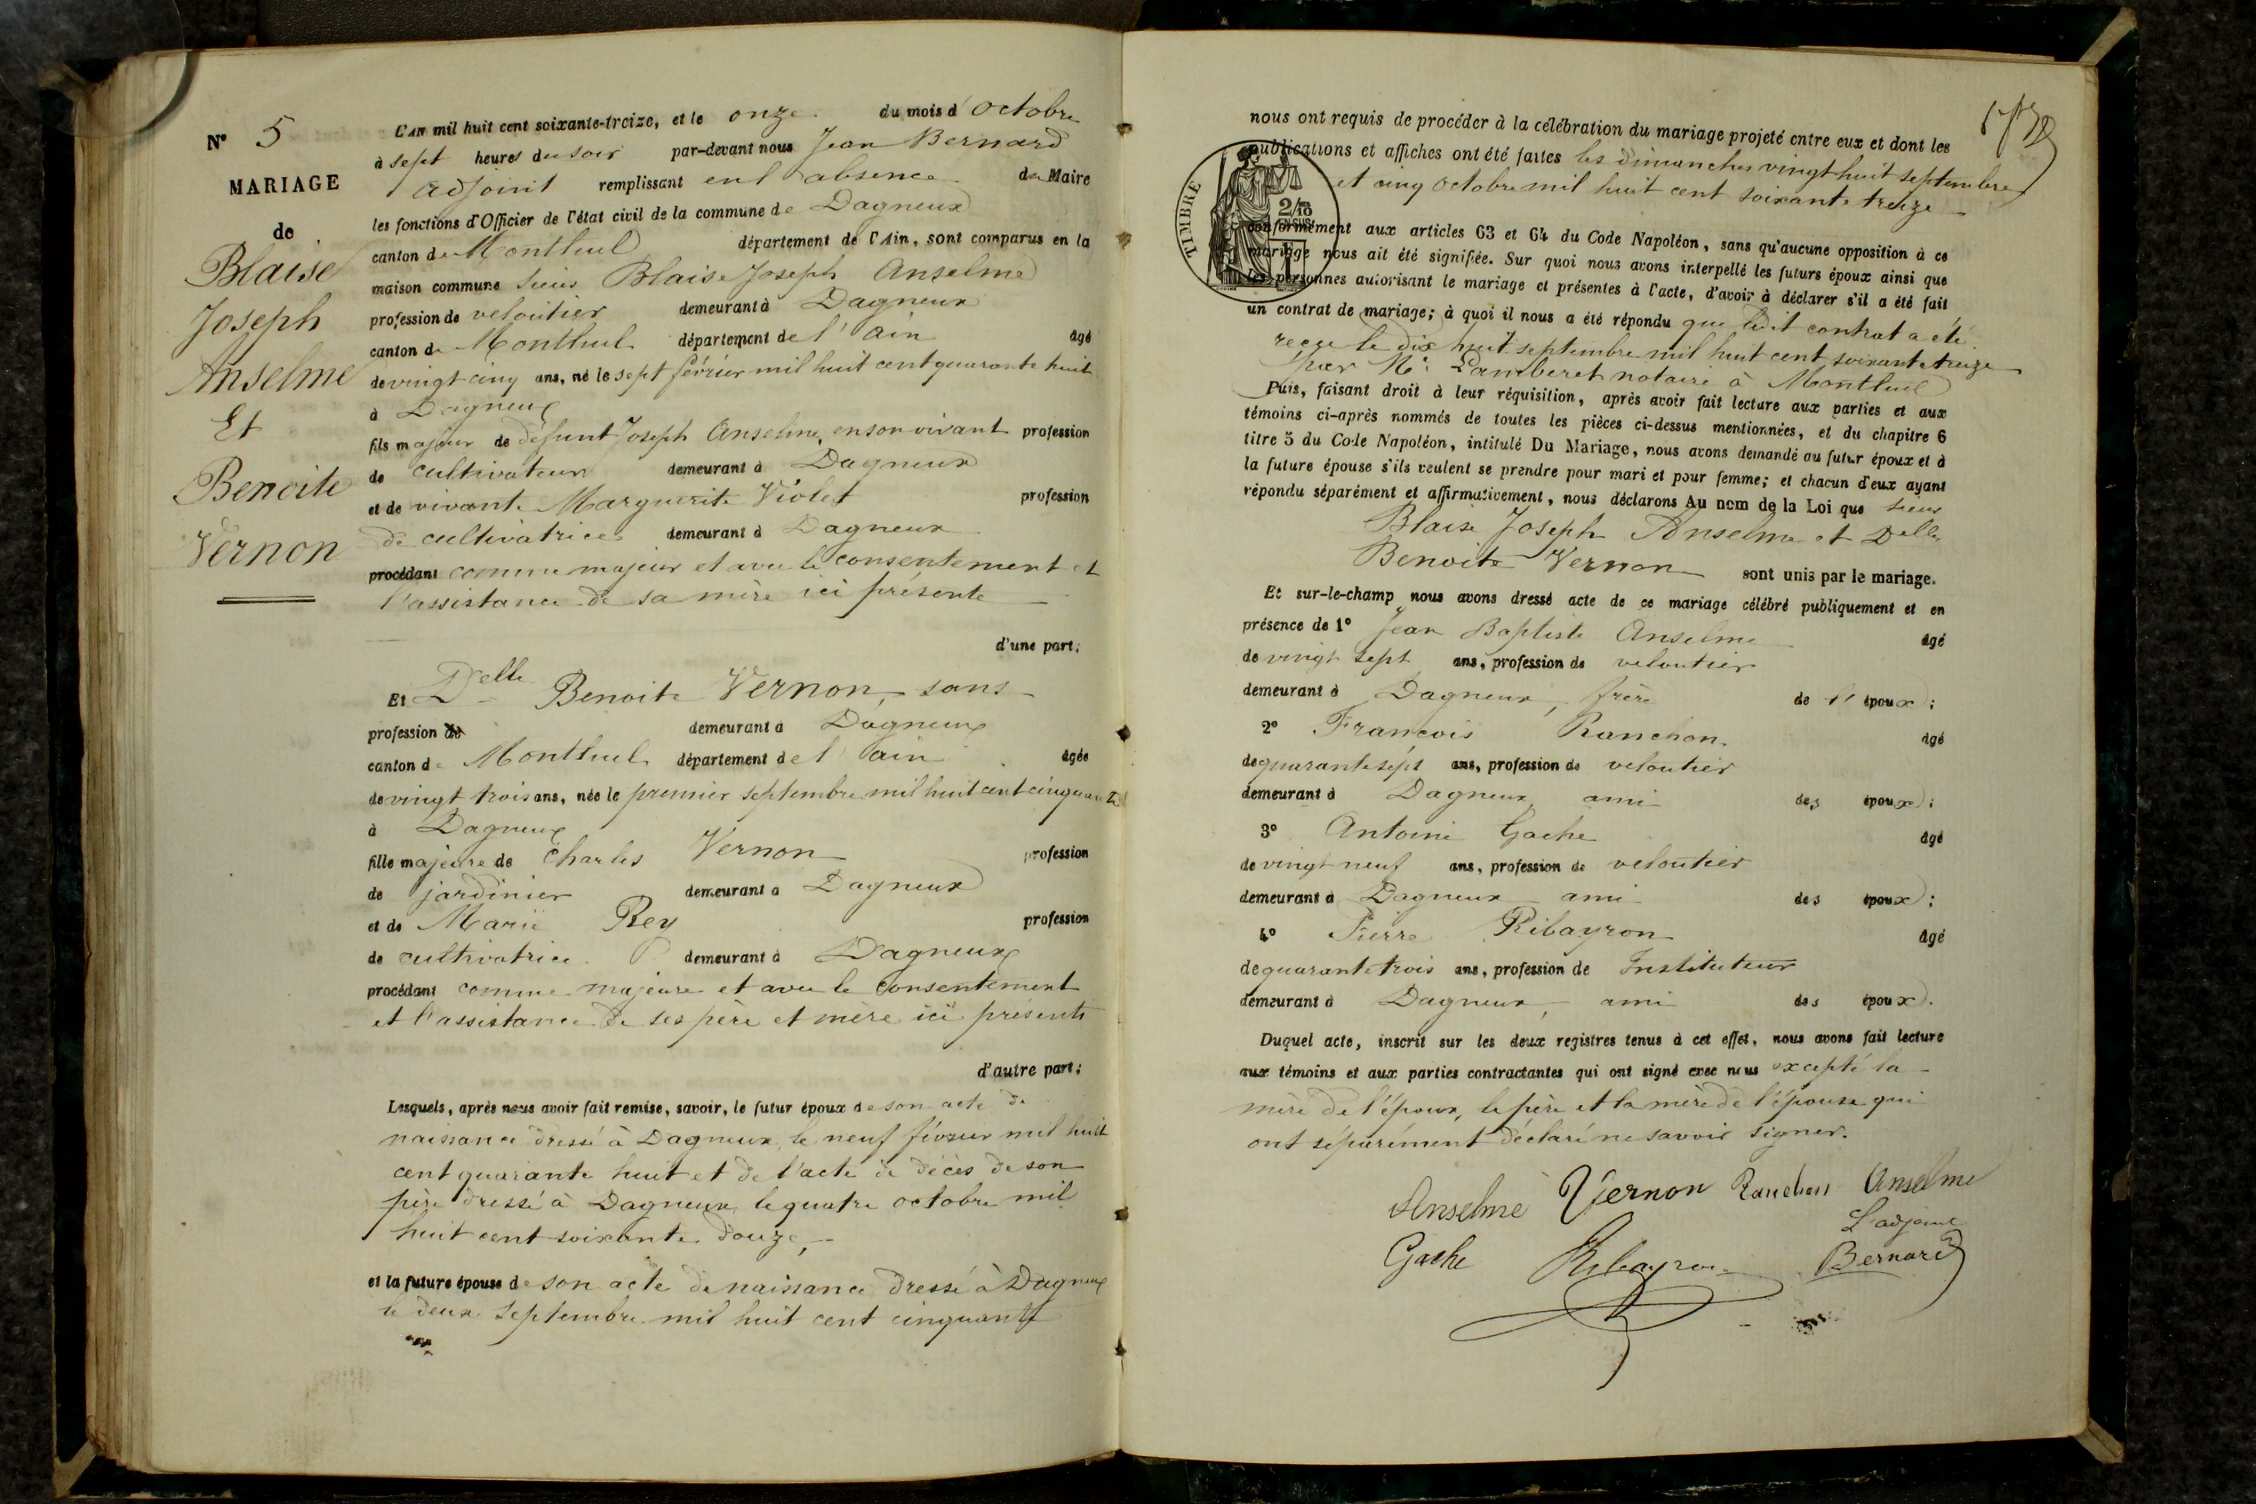 N° 5
MARIAGE
de
Blaise
Joseph
Anselme
Et
Benoite
Vernon
L'AN mil huit cent soixante-treize, et le onze du mois d'octobre
à sept heures du soir par-devant nous Jean Bernard
adjoint remplissant en l'absence du Maire
les fonctions d'Officier de l'état civil de la commune de Dagneux
canton de Montluel département de l'Ain, sont comparus en la
maison commune sieurs Blaise Joseph Anselme
profession de veloutier demeurant à Dagneux
canton de Montluel département de l'ain âgé
de vingt cinq ans, né le sept février mil huit cent quarante huit
à Dagneux
fils majeur de défunt Joseph Anselme, en son vivant profession
de cultivateur demeurant à Dagneux
et de vivante Marguerite Violet profession
de cultivatrice demeurant à Dagneux
procédant comme majeur et avec le consentement et
l'assistance de sa mère ici présente
d'une part;
Et Delle Benoite Vernon, sans
profession de demeurant à Dagneux
canton de Montluel département de l'ain âgée
de vingt trois ans, née le premier septembre mil huit cent cinquante
à Dagneux
fille majeure de Charles Vernon profession
de jardinier demeurant à Dagneux
et de Marie Rey profession
de cultivatrice demeurant à Dagneux
procédant comme majeure et avec le consentement
et l'assistance de ses père et mère ici présents
d'autre part;
Lesquels, après nous avoir fait remise, savoir, le futur époux de son acte de
naissance dressé à Dagneux le neuf février mil huit
cent quarante huit et de l'acte de décès de son
père dressé à Dagneux le quatre octobre mil
huit cent soixante douze,
et la future épouse de son acte de naissance dressé à Dagneux
le deux septembre mil huit cent cinquante
nous ont requis de procéder à la célébration du mariage projeté entre eux et dont les
publications et affiches ont été faites les dimanches vingt huit septembre
et cinq octobre mil huit cent soixante treize
TIMBRE
2/10
EN SUS
conformément aux articles 63 et 64 du Code Napoléon, sans qu'aucune opposition à ce
mariage nous ait été signifiée. Sur quoi nous avons interpellé les futurs époux ainsi que
les personnes autorisant le mariage et présentes à l'acte, d'avoir à déclarer s'il a été fait
un contrat de mariage; à quoi il nous a été répondu que ledit contrat a été
reçu le dix huit septembre mil huit cent soixante treize
par Me Lamberet notaire à Montluel
Puis, faisant droit à leur réquisition, après avoir fait lecture aux parties et aux
témoins ci-après nommés de toutes les pièces ci-dessus mentionnées, et du chapitre 6
titre 5 du Code Napoléon, intitulé Du Mariage, nous avons demandé au futur époux et à
la future épouse s'ils veulent se prendre pour mari et pour femme; et chacun d'eux ayant
répondu séparément et affirmativement, nous déclarons Au nom de la Loi que sieurs
Blaise Joseph Anselme et Delle
Benoite Vernon sont unis par le mariage.
Et sur-le-champ nous avons dressé acte de ce mariage célébré publiquement et en
présence de 1° Jean Baptiste Anselme âgé
de vingt sept ans, profession de veloutier
demeurant à Dagneux, frère de l'époux;
2° François Ranchon âgé
de quarante sept ans, profession de veloutier
demeurant à Dagneux, ami des époux;
3° Antoine Gache âgé
de vingt neuf ans, profession de veloutier
demeurant à Dagneux ami des époux;
4° Pierre Ribayron âgé
de quarante trois ans, profession de Instituteur
demeurant à Dagneux, ami des époux.
Duquel acte, inscrit sur les deux registres tenus à cet effet, nous avons fait lecture
aux témoins et aux parties contractantes qui ont signé avec nous excepté la
mère de l'époux, le père et la mère de l'épouse qui
ont séparément déclaré ne savoir signer.
Anselme Vernon Ranchon Anselme
L'adjoint
Gache Ribayron Bernard